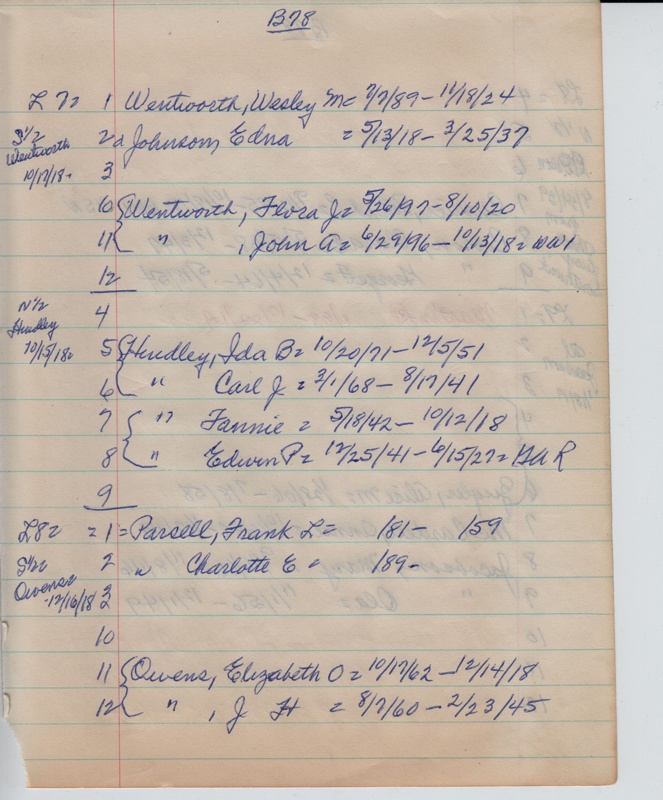 B78
L7= 1 Wentworth, Wesley M= 7/7/89 - 11/18/24
S1/2 2 Johnson, Edna = 5/13/18 - 3/25/37
Wentworth
10/17/18= 3
10 { Wentworth, Flora J= 5/26/97 - 8/10/20
11 { " , John A= 6/29/96 - 10/13/18= WW1
12
N1/2 4
Hindley
10/15/18= 5 { Hindley, Ida B= 10/20/71 - 12/5/51
6 { " Carl J= 3/1/68 - 8/17/41
7 { " Fannie = 5/18/42 - 10/12/18
8 { " Edwin P= 12/25/41 - 6/15/27= GAR
9
L8= = 1 = Parsell, Frank L= 181- 159
S1/2= 2 " Charlotte E = 189-
Owens=
-12/16/18 3
10
11 { Owens, Elizabeth O= 10/17/62 - 12/14/18
12 { " , J H = 8/7/60 - 2/23/45